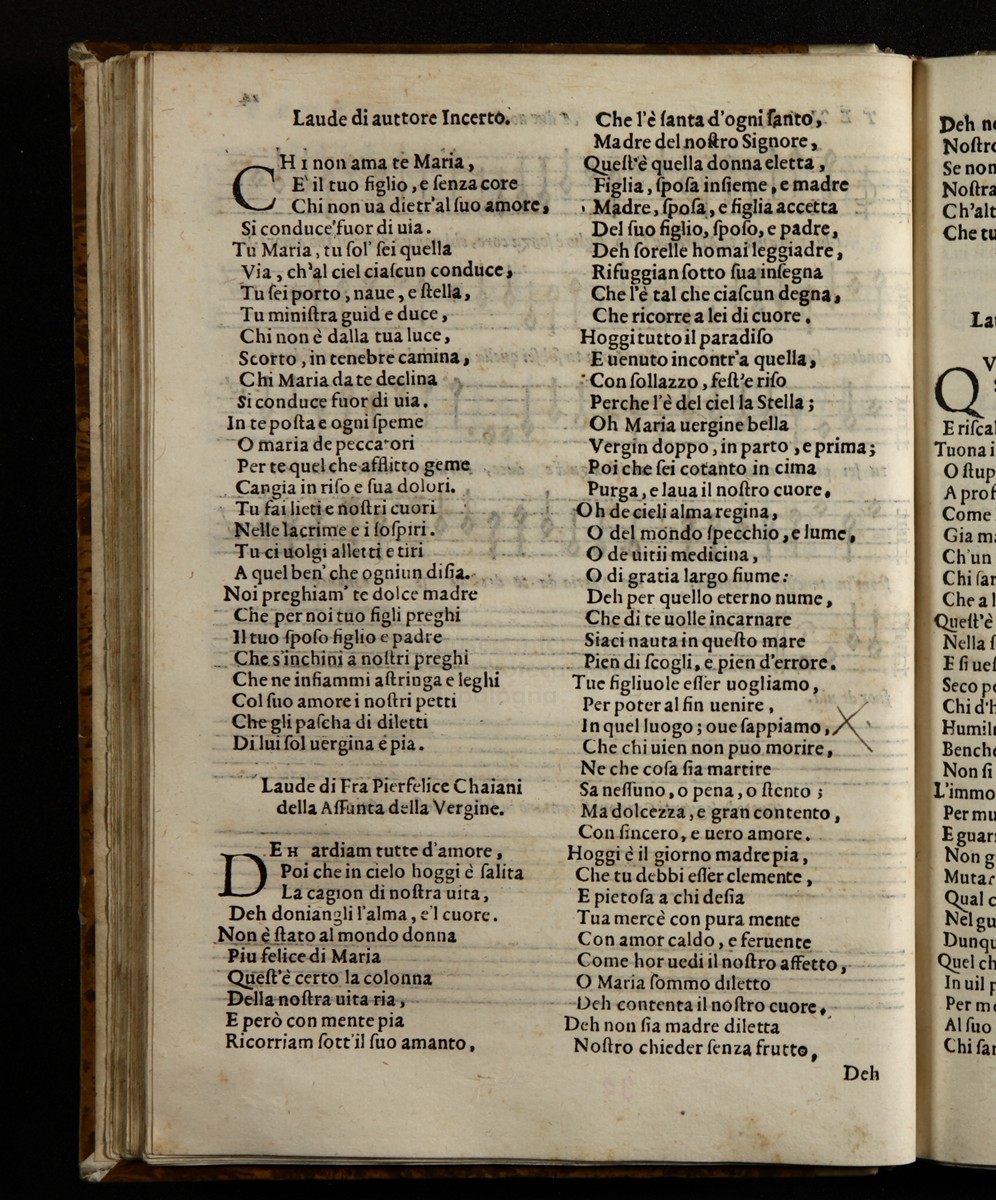 Laude di auttore Incerto.
CHI non ama te Maria,
E' il tuo figlio, e ſenza core
Chi non ua dietr'al ſuo amore,
Si conduce fuor di uia.
Tu Maria, tu ſol' ſei quella
Via, ch'al ciel ciaſcun conduce,
Tu ſei porto, naue, e ſtella,
Tu miniſtra guid e duce,
Chi non è dalla tua luce,
Scorto, in tenebre camina,
Chi Maria da te declina
Si conduce fuor di uia.
In te poſta e ogni ſpeme
O maria de peccatori
Per te quel che afflitto geme
Cangia in riſo e ſua dolori.
Tu fai lieti e noſtri cuori
Nelle lacrime e i ſoſpiri.
Tu ci uolgi alletti e tiri
A quel ben' che ogniun diſia.
Noi preghiam' te dolce madre
Che per noi tuo figli preghi
Il tuo ſpoſo figlio e padre
Che s'inchini a noſtri preghi
Che ne infiammi aſtringa e leghi
Col ſuo amore i noſtri petti
Che gli paſcha di diletti
Di lui ſol uergina e pia.
Laude di Fra Pierfelice Chaiani
della Aſſunta della Vergine.
DEH ardiam tutte d'amore,
Poi che in cielo hoggi è ſalita
La cagion di noſtra uita,
Deh doniangli l'alma, e'l cuore.
Non è ſtato al mondo donna
Piu felice di Maria
Queſt'è certo la colonna
Della noſtra uita ria,
E però con mente pia
Ricorriam ſott'il ſuo amanto,
Che l'è ſanta d'ogni ſanto,
Madre del noſtro Signore,
Queſt'è quella donna eletta,
Figlia, ſpoſa inſieme, e madre
Madre, ſpoſa, e figlia accetta
Del ſuo figlio, ſpoſo, e padre,
Deh ſorelle homai leggiadre,
Rifuggian ſotto ſua inſegna
Che l'è tal che ciaſcun degna,
Che ricorre a lei di cuore.
Hoggi tutto il paradiſo
E uenuto incontr'a quella,
Con ſollazzo, feſt'e riſo
Perche l'è del ciel la Stella;
Oh Maria uergine bella
Vergin doppo, in parto, e prima;
Poi che ſei cotanto in cima
Purga, e laua il noſtro cuore,
Oh de cieli alma regina,
O del mondo ſpecchio, e lume,
O de uitii medicina,
O di gratia largo fiume:
Deh per quello eterno nume,
Che di te uolle incarnare
Siaci nauta in queſto mare
Pien di ſcogli, e pien d'errore.
Tue figliuole eſſer uogliamo,
Per poter al fin uenire,
In quel luogo; oue ſappiamo,
Che chi uien non puo morire,
Ne che coſa ſia martire
Sa neſſuno, o pena, o ſtento;
Ma dolcezza, e gran contento,
Con ſincero, e uero amore.
Hoggi è il giorno madre pia,
Che tu debbi eſſer clemente,
E pietoſa a chi deſia
Tua mercè con pura mente
Con amor caldo, e feruente
Come hor uedi il noſtro affetto,
O Maria ſommo diletto
Deh contenta il noſtro cuore,
Deh non ſia madre diletta
Noſtro chieder ſenza frutto,
Deh
Deh
Noſtr
Se non
Noſtra
Ch'alt
Che tu
La
Q
E riſca
Tuona i
O ſtup
A prof
Come
Gia m
Ch'un
Chi ſa
Che a l
Queſt'è
Nella
E ſi ueſ
Seco p
Chi d'
Humil
Benche
Non ſi
L'immo
Per mu
E guar
Non g
Mutar
Qual
Nel gu
Dunqu
Quel ch
In uil
Per m
Al ſuo
Chi ſa